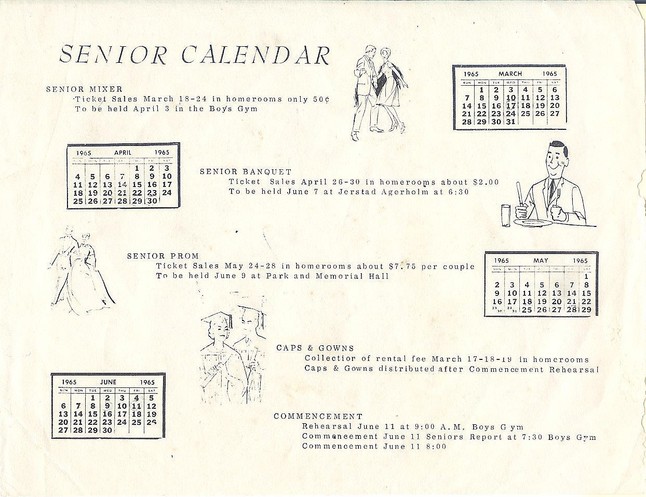 SENIOR CALENDAR
SENIOR MIXER
Ticket Sales March 18-24 in homerooms only 50¢
To be held April 3 in the Boy's Gym
1965 MARCH 1965
SUN MON TUE WED THU FRI SAT
1 2 3 4 5 6
7 8 9 10 11 12 13
14 15 16 17 18 19 20
21 22 23 24 25 26 27
28 29 30 31
1965 APRIL 1965
1 2 3
4 5 6 7 8 9 10
11 12 13 14 15 16 17
18 19 20 21 22 23 24
25 26 27 28 29 30
SENIOR BANQUET
Ticket Sales April 26-30 in homerooms about $2.00
To be held June 7 at Jerstad Agerholm at 6:30
SENIOR PROM
Ticket Sales May 24-28 in homerooms about $7.75 per couple
To be held June 9 at Park and Memorial Hall
1965 MAY 1965
1
2 3 4 5 6 7 8
9 10 11 12 13 14 15
16 17 18 19 20 21 22
25 26 27 28 29
CAPS & GOWNS
Collection of rental fee March 17-18-19 in homerooms
Caps & Gowns distributed after Commencement Rehearsal
1965 JUNE 1965
SUN MON TUE WED THU FRI SAT
1 2 3 4 5
6 7 8 9 10 11 12
13 14 15 16 17 18 19
20 21 22 23 24 25 26
27 28 29 30
COMMENCEMENT
Rehearsal June 11 at 9:00 A.M. Boys Gym
Commencement June 11 Seniors Report at 7:30 Boys Gym
Commencement June 11 8:00